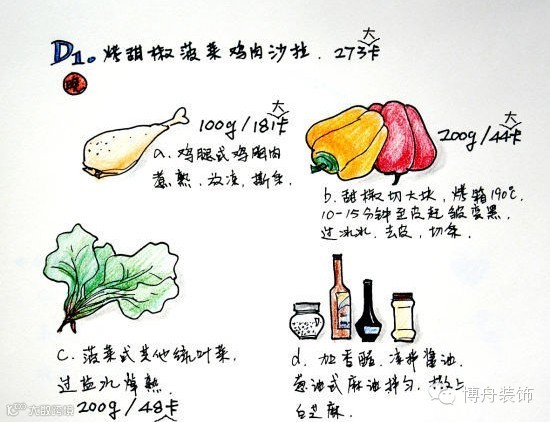 D1。烤甜椒菠菜鸡肉沙拉．273大卡
100g/181大卡
a．鸡腿式鸡胸肉
蒸熟，放凉，撕条．
200g/44大卡
b．甜椒切大块，烤箱190℃．
10-15分钟至皮起皱变黑，
过冰水．去皮，切条．
c．菠菜式其他绿叶菜，
过盐水焯熟．
200g/48大卡
d．加香醋，凉拌酱油．
葱油式麻油拌匀．撒上
白芝麻．
博舟装饰